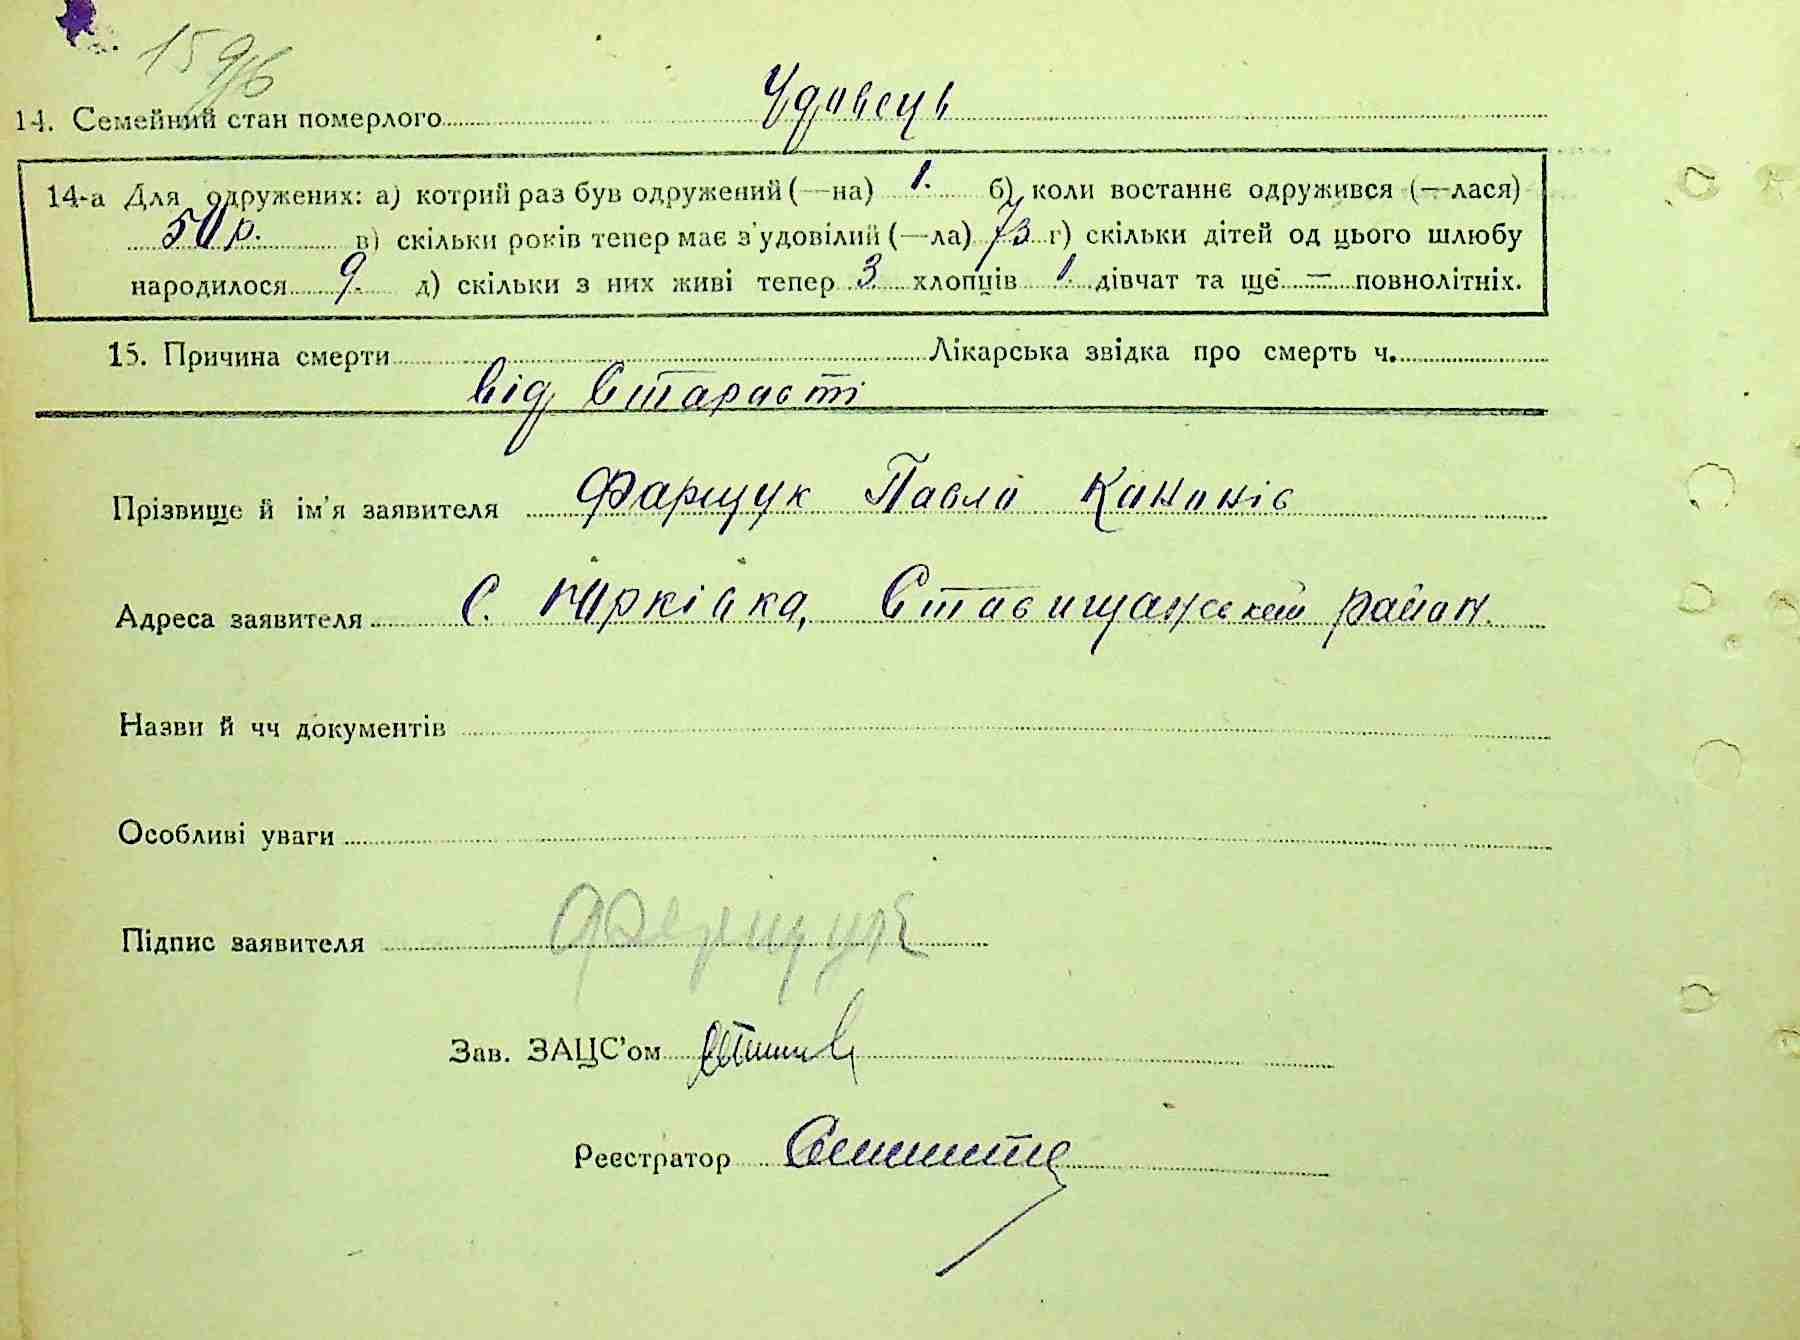 159/6
14. Семейний стан померлого Удовець
14-а Для одружених: а) котрий раз був одружений (—на) 1. б) коли востаннє одружився (—лася)
50 р. в) скільки років тепер має з'удовілий (—ла) 73 г) скільки дітей од цього шлюбу
народилося 9. д) скільки з них живі тепер 3 хлопців 1 дівчат та ще — повнолітніх.
15. Причина смерти Лікарська звідка про смерть ч.
від Старости
Прізвище й ім'я заявителя Фарщук Павло Кононів
Адреса заявителя С. Юрківка, Ставищанський район.
Назви й чч документів
Особливі уваги
Підпис заявителя Фарщук
Зав. ЗАЦС'ом
Реєстратор